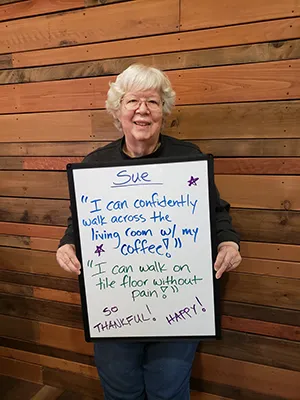 Sue
"I can confidently
walk across the
living room w/ my
coffee!"
"I can walk on
tile floor without
pain!"
SO
THANKFUL! HAPPY!